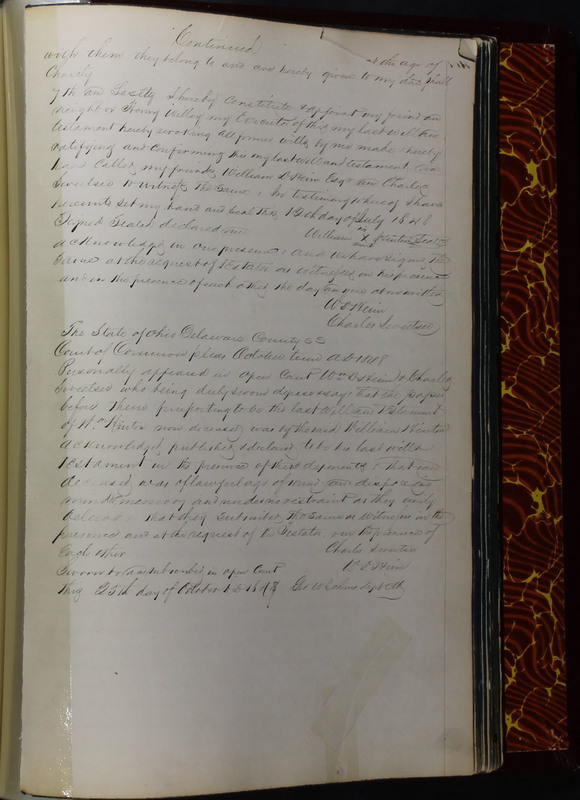 Continued
with them they belong to and are hereby given to my
Charity
7th and Lastly I hereby constitute & appoint my friend
my Executor of this my last will and
testament hereby revoking all former wills by me made & hereby
ratifying and confirming this my last will and testament,
have called my friends William D Heim Esqr and Charles
Sweetser to witness the same. In testimony whereof I have
hereunto set my hand and seal this 12th day of July 1848
Signed Sealed declared and William X Seal
acknowledged in our presence & and we have signed the
same at the request of Testator as witnesses in his presence
and in the presence of each other the day and year above written
W D Heim
Charles Sweetser
The State of Ohio Delaware County SS
Court of Common pleas October term AD 1848
Personally appeared in open Court Wm D Heim & Charles
Sweetser who being duly sworn depose & say that the paper
before them purporting to be the last Will and Testament
of Wm now deceased was by the said William
acknowledged published & declared to be his last will &
Testament in the presence of these deponents & that
deceased was of lawful age of mind and disposing
sound memory and under no restraint as they verily
believe. that they subscribed the same as witnesses in the
presence and at the request of the Testator and in the presence of
Each other Charles Sweetser
Sworn to and subscribed in open Court W D Heim
this 25th day of October AD 1848 Geo W